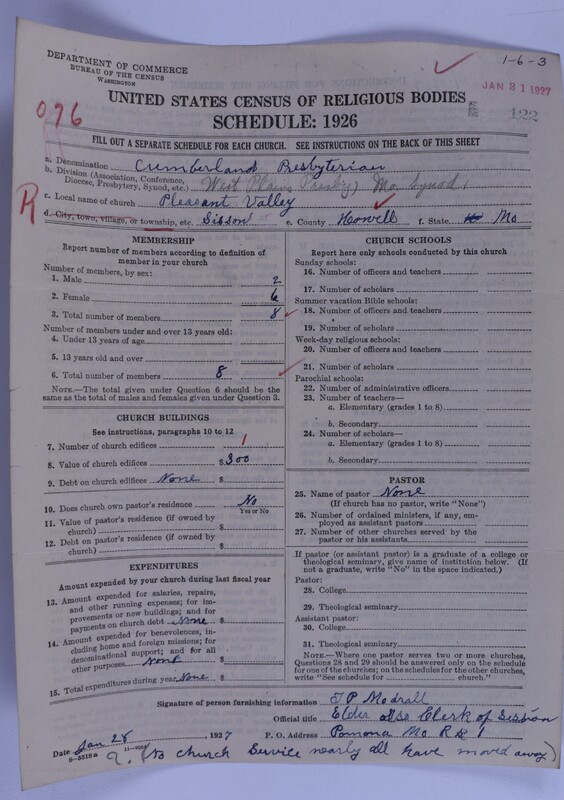 DEPARTMENT OF COMMERCE
BUREAU OF THE CENSUS
WASHINGTON
1-6-3
JAN 31 1927
122
076
R
UNITED STATES CENSUS OF RELIGIOUS BODIES
SCHEDULE: 1926
FILL OUT A SEPARATE SCHEDULE FOR EACH CHURCH. SEE INSTRUCTIONS ON THE BACK OF THIS SHEET
a. Denomination Cumberland Presbyterian
b. Division (Association, Conference, Diocese, Presbytery, Synod, etc.) West Plains Presby, Mo. Synod
c. Local name of church Pleasant Valley
d. City, town, village, or township, etc. Sisson e. County Howell f. State Mo
MEMBERSHIP
Report number of members according to definition of
member in your church
Number of members, by sex:
1. Male 2
2. Female 6
3. Total number of members 8
Number of members under and over 13 years old:
4. Under 13 years of age
5. 13 years old and over
6. Total number of members 8
NOTE.—The total given under Question 6 should be the
same as the total of males and females given under Question 3.
CHURCH BUILDINGS
See instructions, paragraphs 10 to 12
7. Number of church edifices 1
8. Value of church edifices $300
9. Debt on church edifices None $
10. Does church own pastor's residence? No
Yes or No
11. Value of pastor's residence (if owned by
church) $
12. Debt on pastor's residence (if owned by
church) $
EXPENDITURES
Amount expended by your church during last fiscal year
13. Amount expended for salaries, repairs,
and other running expenses; for im-
provements or new buildings; and for
payments on church debt None $
14. Amount expended for benevolences, in-
cluding home and foreign missions; for
denominational support; and for all
other purposes None $
15. Total expenditures during year None $
CHURCH SCHOOLS
Report here only schools conducted by this church
Sunday schools:
16. Number of officers and teachers
17. Number of scholars
Summer vacation Bible schools:
18. Number of officers and teachers
19. Number of scholars
Week-day religious schools:
20. Number of officers and teachers
21. Number of scholars
Parochial schools:
22. Number of administrative officers
23. Number of teachers—
a. Elementary (grades 1 to 8)
b. Secondary
24. Number of scholars—
a. Elementary (grades 1 to 8)
b. Secondary
PASTOR
25. Name of pastor None
(If church has no pastor, write "None")
26. Number of ordained ministers, if any, em-
ployed as assistant pastors
27. Number of other churches served by the
pastor or his assistants
If pastor (or assistant pastor) is a graduate of a college or
theological seminary, give name of institution below. (If
not a graduate, write "No" in the space indicated.)
Pastor:
28. College
29. Theological seminary
Assistant pastor:
30. College
31. Theological seminary
NOTE.—Where one pastor serves two or more churches,
Questions 28 and 29 should be answered only on the schedule
for one of the churches; on the schedules for the other churches,
write "See schedule for church."
Signature of person furnishing information T P Modrall
Official title Elder also Clerk of Session
Date Jan 28, 1927 P. O. Address Pomona Mo R R 1
8-5518 a
(No church Service nearly all have moved away)